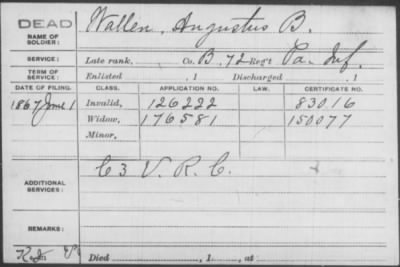 DEAD
NAME OF SOLDIER: Wallen, Augustus B.
SERVICE: Late rank, Co. B, 72 Regt Pa. Inf.
TERM OF SERVICE: Enlisted , 1 Discharged , 1
DATE OF FILING. CLASS. APPLICATION NO. LAW. CERTIFICATE NO.
1867 June 1 Invalid, 126222 83016
Widow, 176581 150077
Minor,
ADDITIONAL SERVICES: C 3 V. R. C.
REMARKS:
Died , 1 , at